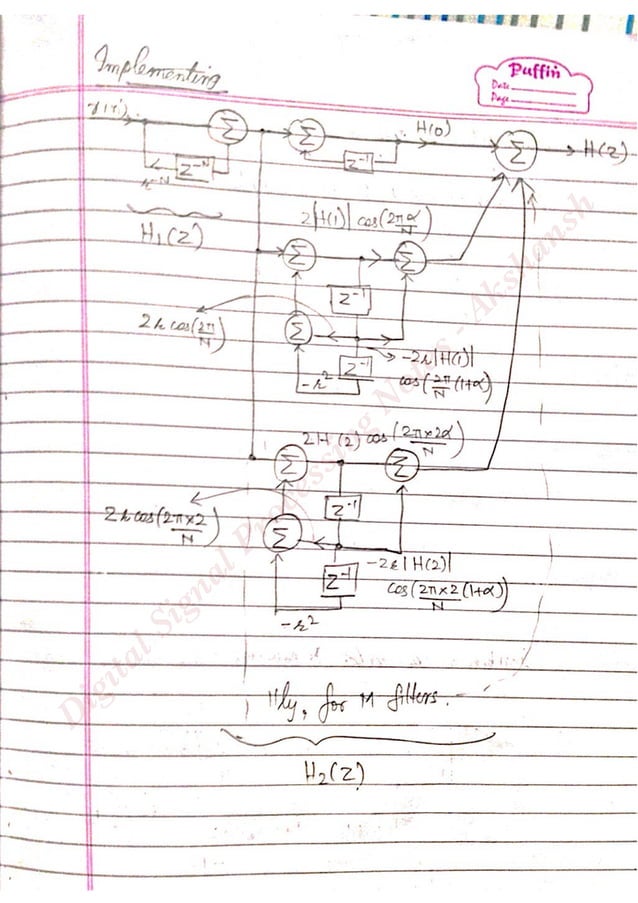 Implementing
Puffin
Date
Page
Z^-N
r^-N
H₁(Z)
Σ
Σ
Z^-1
H(0)
Σ
H(Z)
2|H(1)| cos(2πα/N)
Σ
Σ
Z^-1
2r cos(2π/N)
Σ
Z^-1
-r²
-2r|H(1)|
cos(2π/N (1+α))
2H(2) cos(2π×2α/N)
Σ
Σ
Z^-1
2r cos(2π×2/N)
Σ
Z^-1
-r²
-2r|H(2)|
cos(2π×2/N (1+α))
||ly, for M filters.
H₂(Z)
Digital Signal Processing Notes - Akshansh